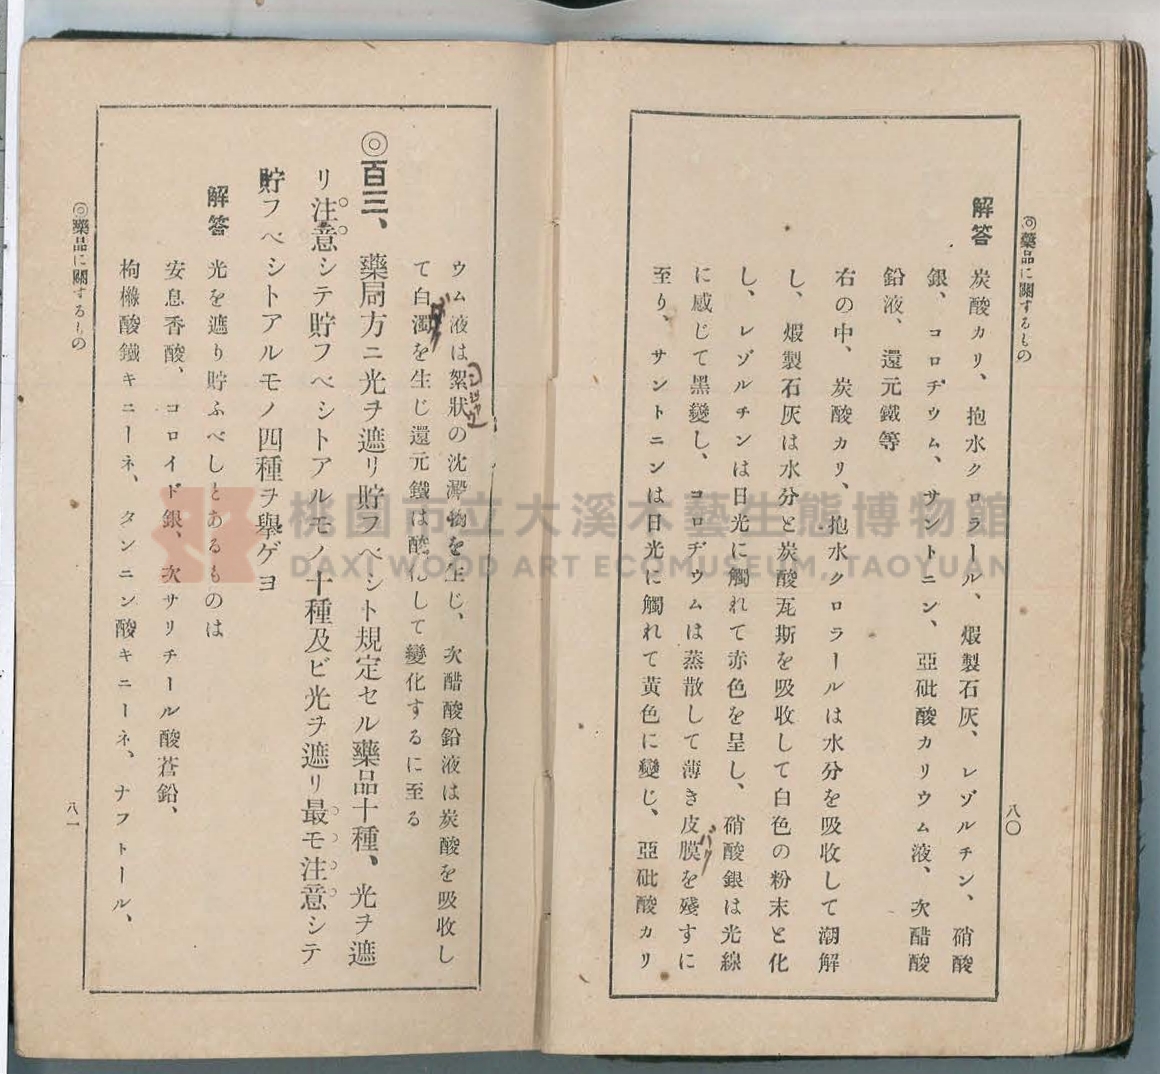 ◎藥品に關するもの
八〇
解答 炭酸カリ、抱水クロラール、煆製石灰、レゾルチン、硝酸
銀、コロヂウム、サントニン、亞砒酸カリウム液、次醋酸
鉛液、還元鐵等
右の中、炭酸カリ、抱水クロラールは水分を吸收して潮解
し、煆製石灰は水分と炭酸瓦斯を吸收して白色の粉末と化
し、レゾルチンは日光に觸れて赤色を呈し、硝酸銀は光線
に感じて黑變し、コロヂウムは蒸散して薄き皮膜を殘すに
至り、サントニンは日光に觸れて黃色に變じ、亞砒酸カリ
ウム液は絮狀の沈澱物を生じ、次醋酸鉛液は炭酸を吸收し
て白濁を生じ還元鐵は酸化して變化するに至る
◎百三、藥局方ニ光ヲ遮リ貯フベシト規定セル藥品十種、光ヲ遮
リ注意シテ貯フベシトアルモノ十種及ビ光ヲ遮リ最モ注意シテ
貯フベシトアルモノ四種ヲ擧ゲヨ
解答 光を遮り貯ふべしとあるものは
安息香酸、コロイド銀、次サリチール酸蒼鉛、
枸櫞酸鐵キニーネ、タンニン酸キニーネ、ナフトール、
◎藥品に關するもの
八一
桃園市立大溪木藝生態博物館
DAXI WOOD ART ECOMUSEUM, TAOYUAN